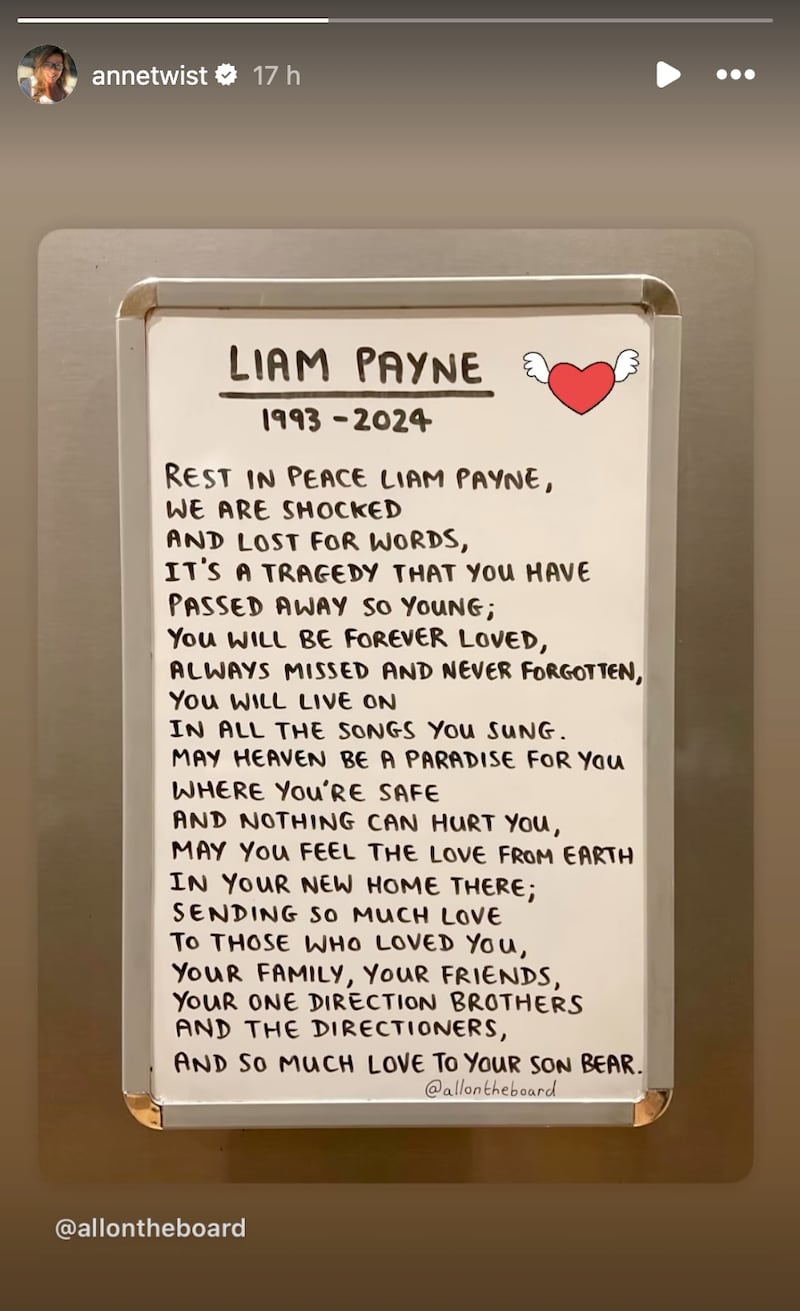 annetwist 17 h
LIAM PAYNE
1993 - 2024
REST IN PEACE LIAM PAYNE,
WE ARE SHOCKED
AND LOST FOR WORDS,
IT'S A TRAGEDY THAT YOU HAVE
PASSED AWAY SO YOUNG;
YOU WILL BE FOREVER LOVED,
ALWAYS MISSED AND NEVER FORGOTTEN,
YOU WILL LIVE ON
IN ALL THE SONGS YOU SUNG.
MAY HEAVEN BE A PARADISE FOR YOU
WHERE YOU'RE SAFE
AND NOTHING CAN HURT YOU,
MAY YOU FEEL THE LOVE FROM EARTH
IN YOUR NEW HOME THERE;
SENDING SO MUCH LOVE
TO THOSE WHO LOVED YOU,
YOUR FAMILY, YOUR FRIENDS,
YOUR ONE DIRECTION BROTHERS
AND THE DIRECTIONERS,
AND SO MUCH LOVE TO YOUR SON BEAR.
@allontheboard
@allontheboard